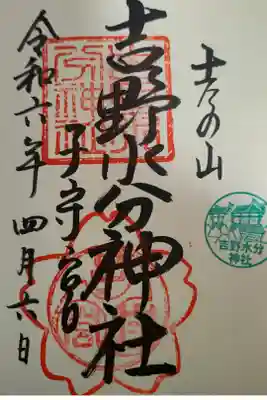 吉の山
吉野水分神社
子守宮
令和六年 四月六日
吉野水分
神社